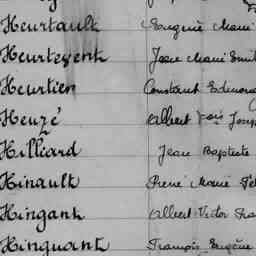 Heurtault Eugène Marie
Heurtevent Jean Marie Emil
Heurtier Constant Edmond
Heuzé Albert Fois Josep
Hilliard Jean Baptiste
Hinault René Marie
Hingant Albert Victor Fra
Hinguant François Eugène